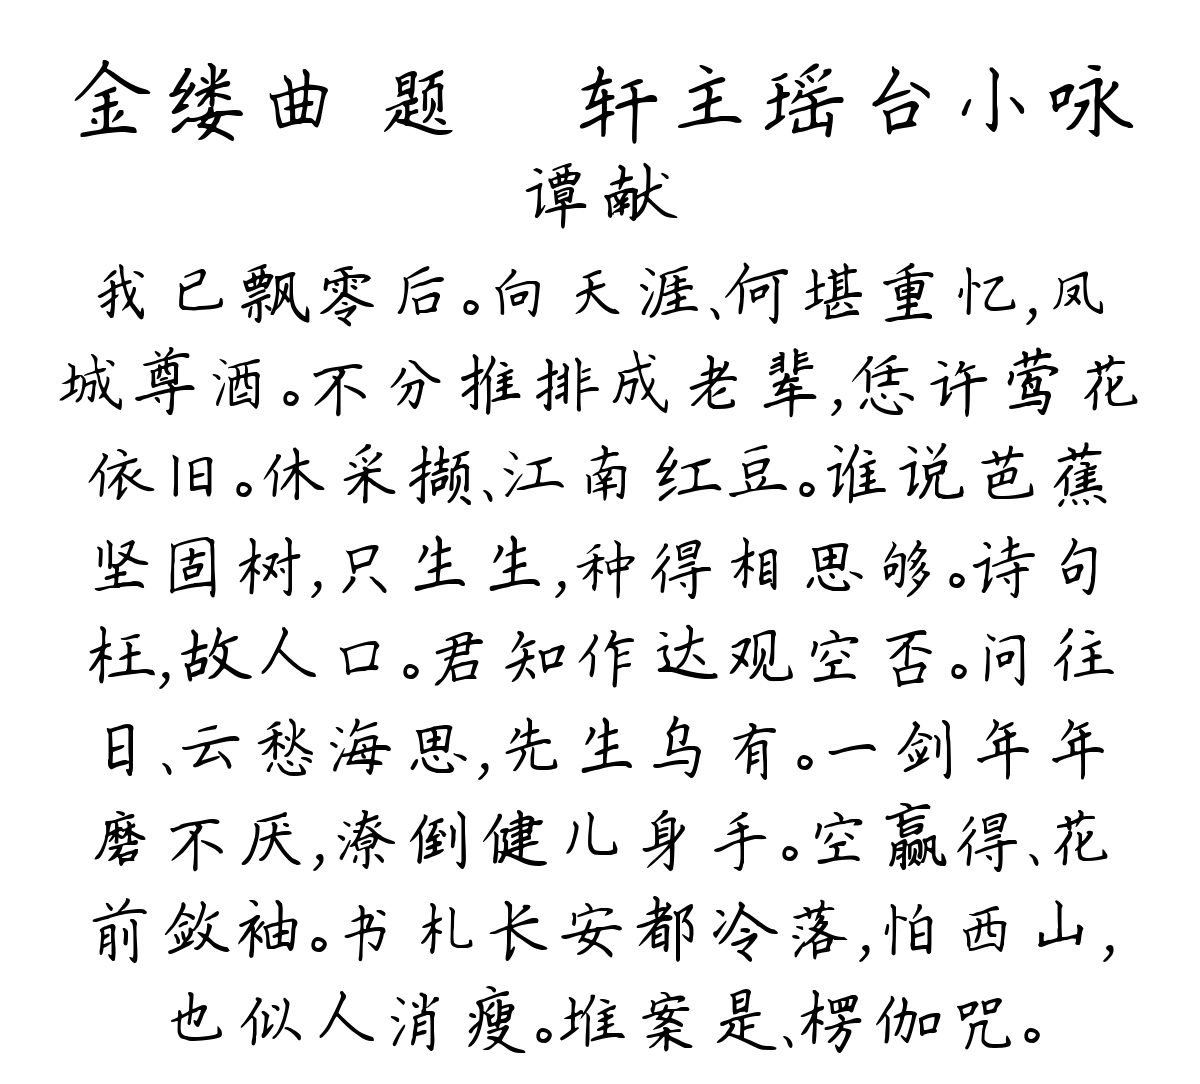 金缕曲 题 轩主瑶台小咏
谭献
我已飘零后。向天涯、何堪重忆,凤
城尊酒。不分推排成老辈,恁许莺花
依旧。休采撷、江南红豆。谁说芭蕉
坚固树,只生生,种得相思够。诗句
枉,故人口。君知作达观空否。问往
日、云愁海思,先生乌有。一剑年年
磨不厌,潦倒健儿身手。空赢得、花
前敛袖。书札长安都冷落,怕西山,
也似人消瘦。堆案是、楞伽咒。